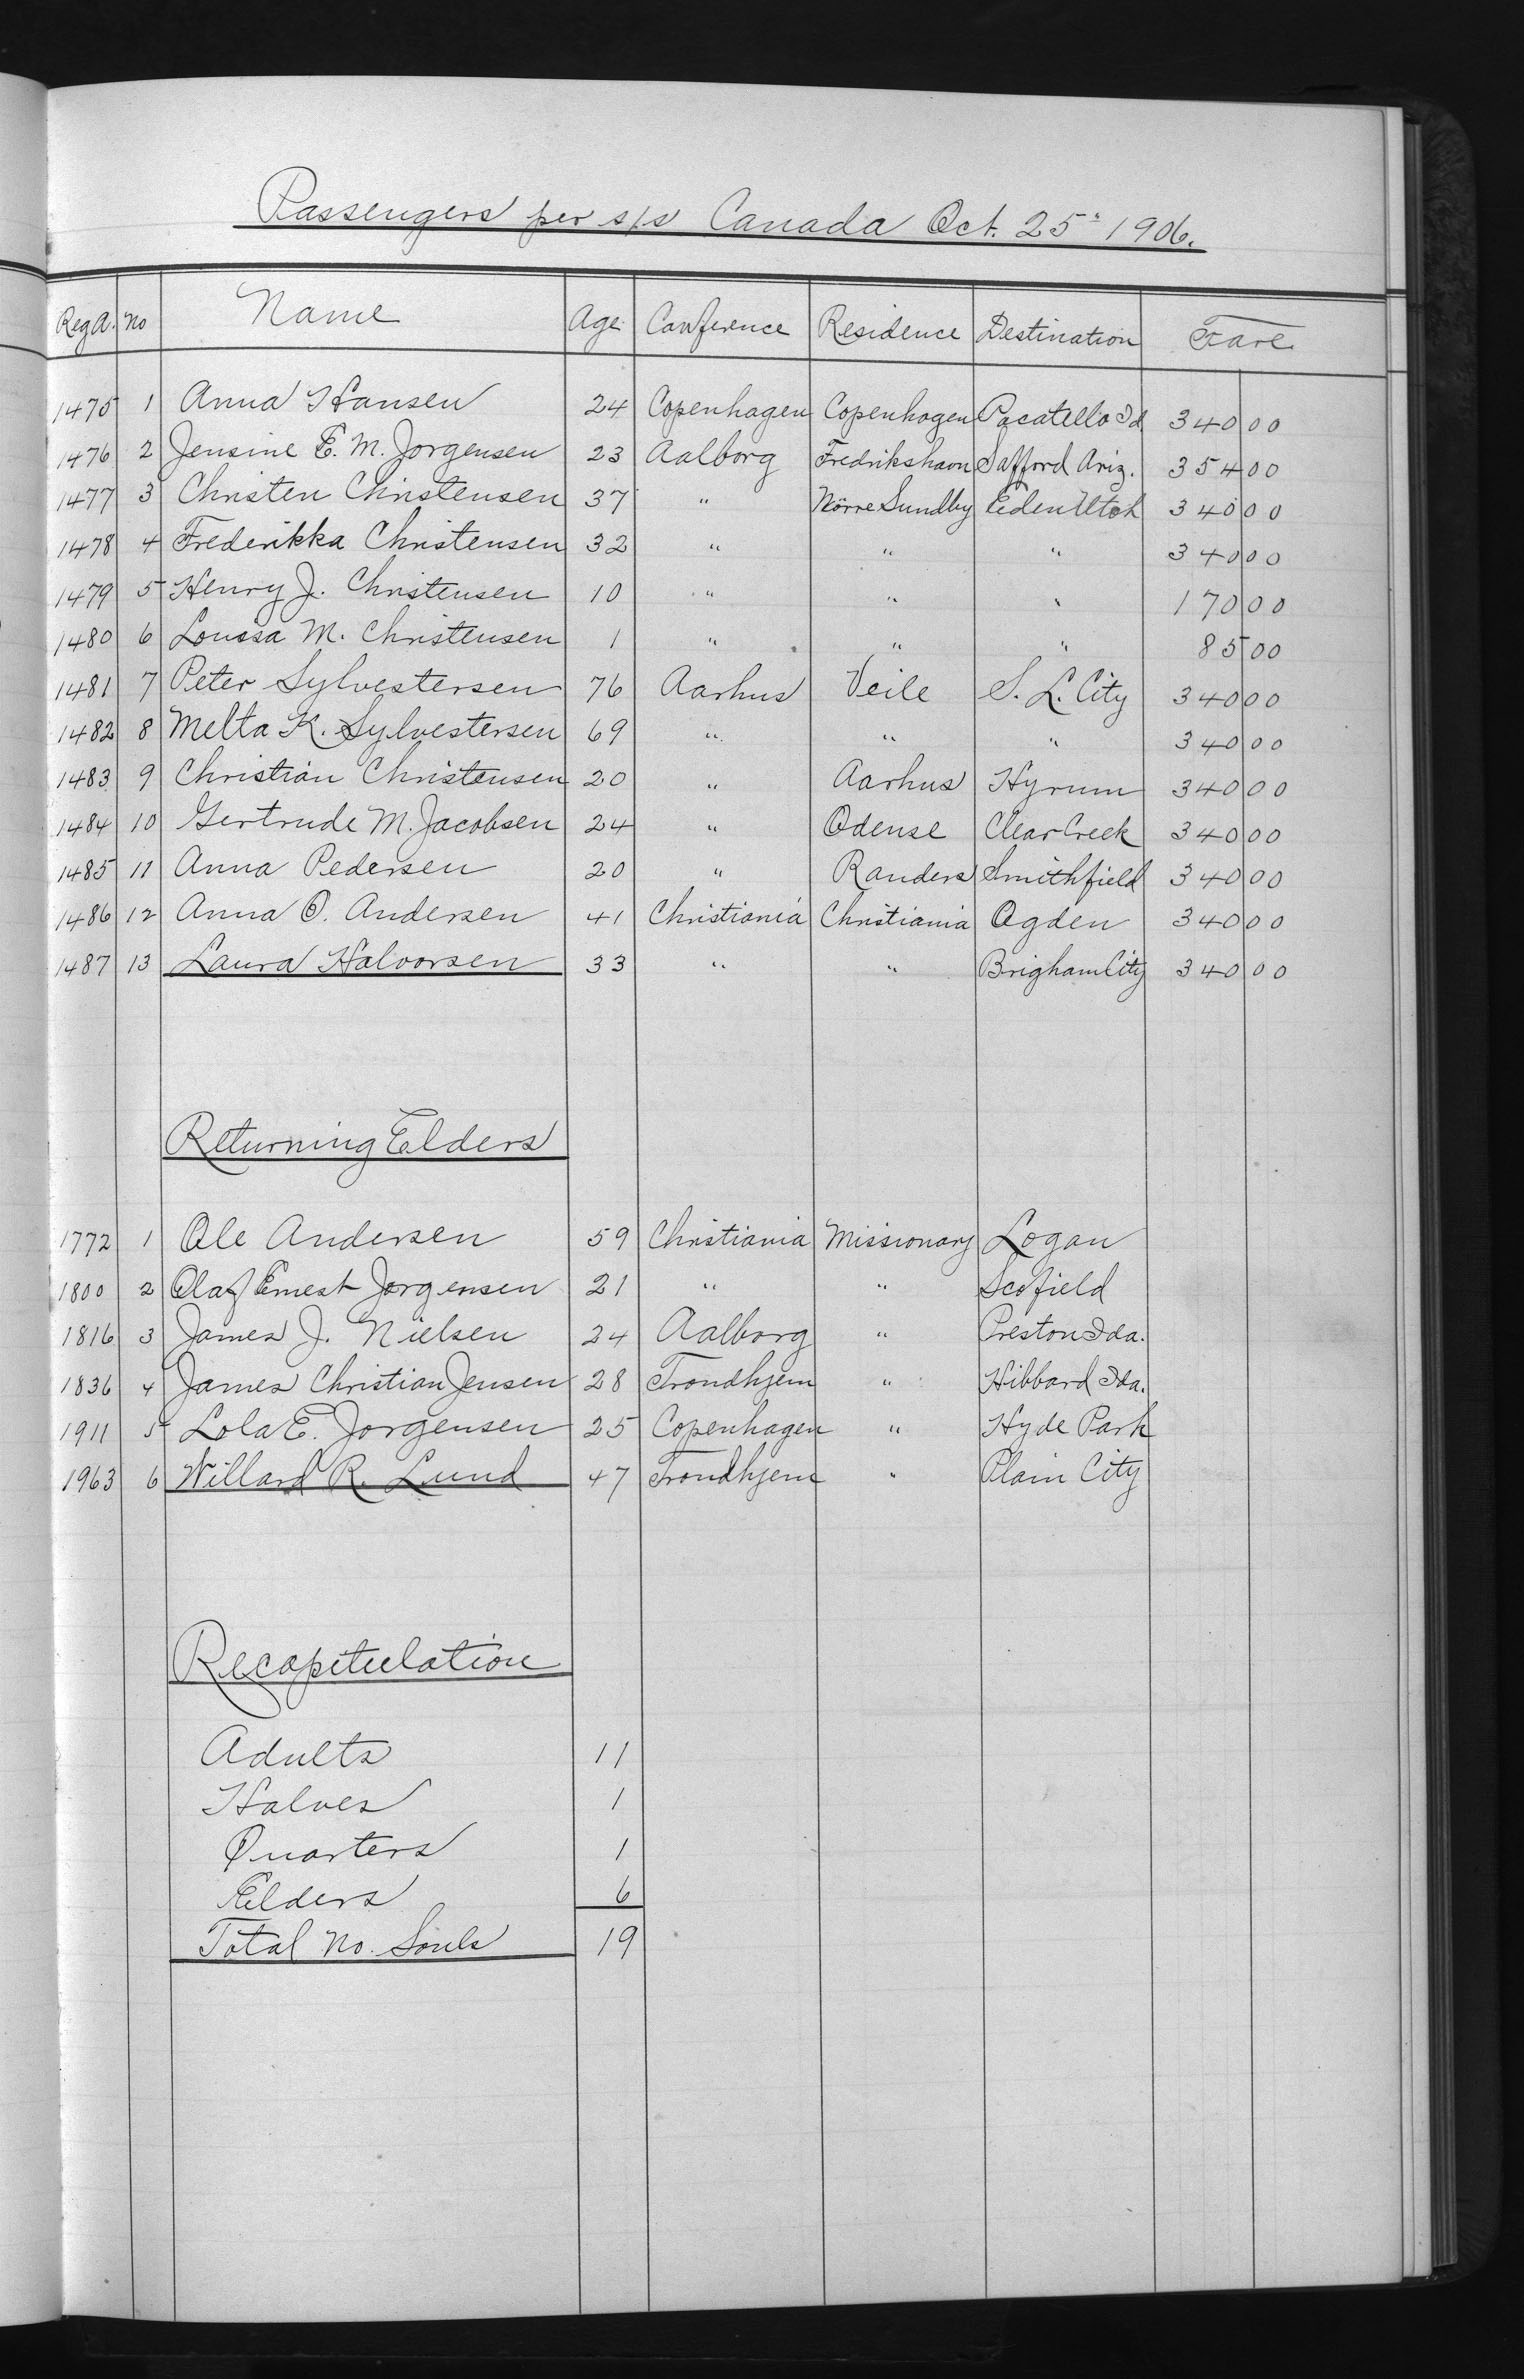 Passengers per s/s Canada Oct. 25" 1906.
Reg A. No Name Age Conference Residence Destination Fare
1475 1 Anna Hansen 24 Copenhagen Copenhagen Pocatello Id. 340 00
1476 2 Jensine E. M. Jorgensen 23 Aalborg Fredrikshavn Safford Ariz. 354 00
1477 3 Christen Christensen 37 " Nörre Sundby Eden Utah 340 00
1478 4 Frederikka Christensen 32 " " " 340 00
1479 5 Henry J. Christensen 10 " " " 170 00
1480 6 Louisa M. Christensen 1 " " " 85 00
1481 7 Peter Sylvestersen 76 Aarhus Veile S. L. City 340 00
1482 8 Melta K. Sylvestersen 69 " " " 340 00
1483 9 Christian Christensen 20 " Aarhus Hyrum 340 00
1484 10 Gertrude M. Jacobsen 24 " Odense Clear Creek 340 00
1485 11 Anna Pedersen 20 " Randers Smithfield 340 00
1486 12 Anna O. Andersen 41 Christiania Christiania Ogden 340 00
1487 13 Laura Halvorsen 33 " " Brigham City 340 00
Returning Elders
1772 1 Ole Andersen 59 Christiania Missionary Logan
1800 2 Olaf Ernest Jorgensen 21 " " Scofield
1816 3 James J. Nielsen 24 Aalborg " Preston Ida.
1836 4 James Christian Jensen 28 Trondhjem " Hibbard Ida.
1911 5 Lola E. Jorgensen 25 Copenhagen " Hyde Park
1963 6 Willard R. Lund 47 Trondhjem " Plain City
Recapitulation
Adults 11
Halves 1
Quarters 1
Elders 6
Total No. Souls 19